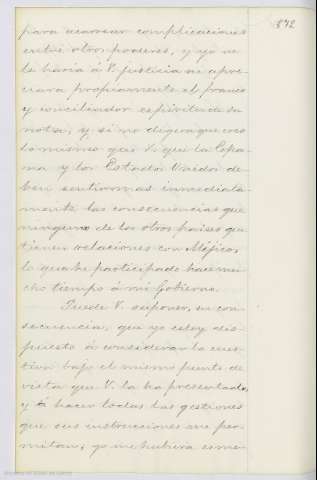 872
para acarrear complicaciones
entre otros poderes, y yo no
le haría á V. justicia ni apre-
ciara propiamente el franco
y conciliador espíritu de su
nota, y si no dijera que creo
lo mismo que V. que la Espa-
ña y los Estados Unidos de-
ben sentir mas inmediata-
mente las consecuencias que
ninguno de los otros países que
tienen relaciones con Méjico,
lo que he participado hace mu-
cho tiempo á mi Gobierno.
Puede V. suponer, en con-
secuencia, que yo estoy dis-
puesto á considerar la cues-
tion bajo el mismo punto de
vista que V. la ha presentado,
y á hacer todas las gestiones
que sus instrucciones me per-
mitan; yo me hubiera esme-